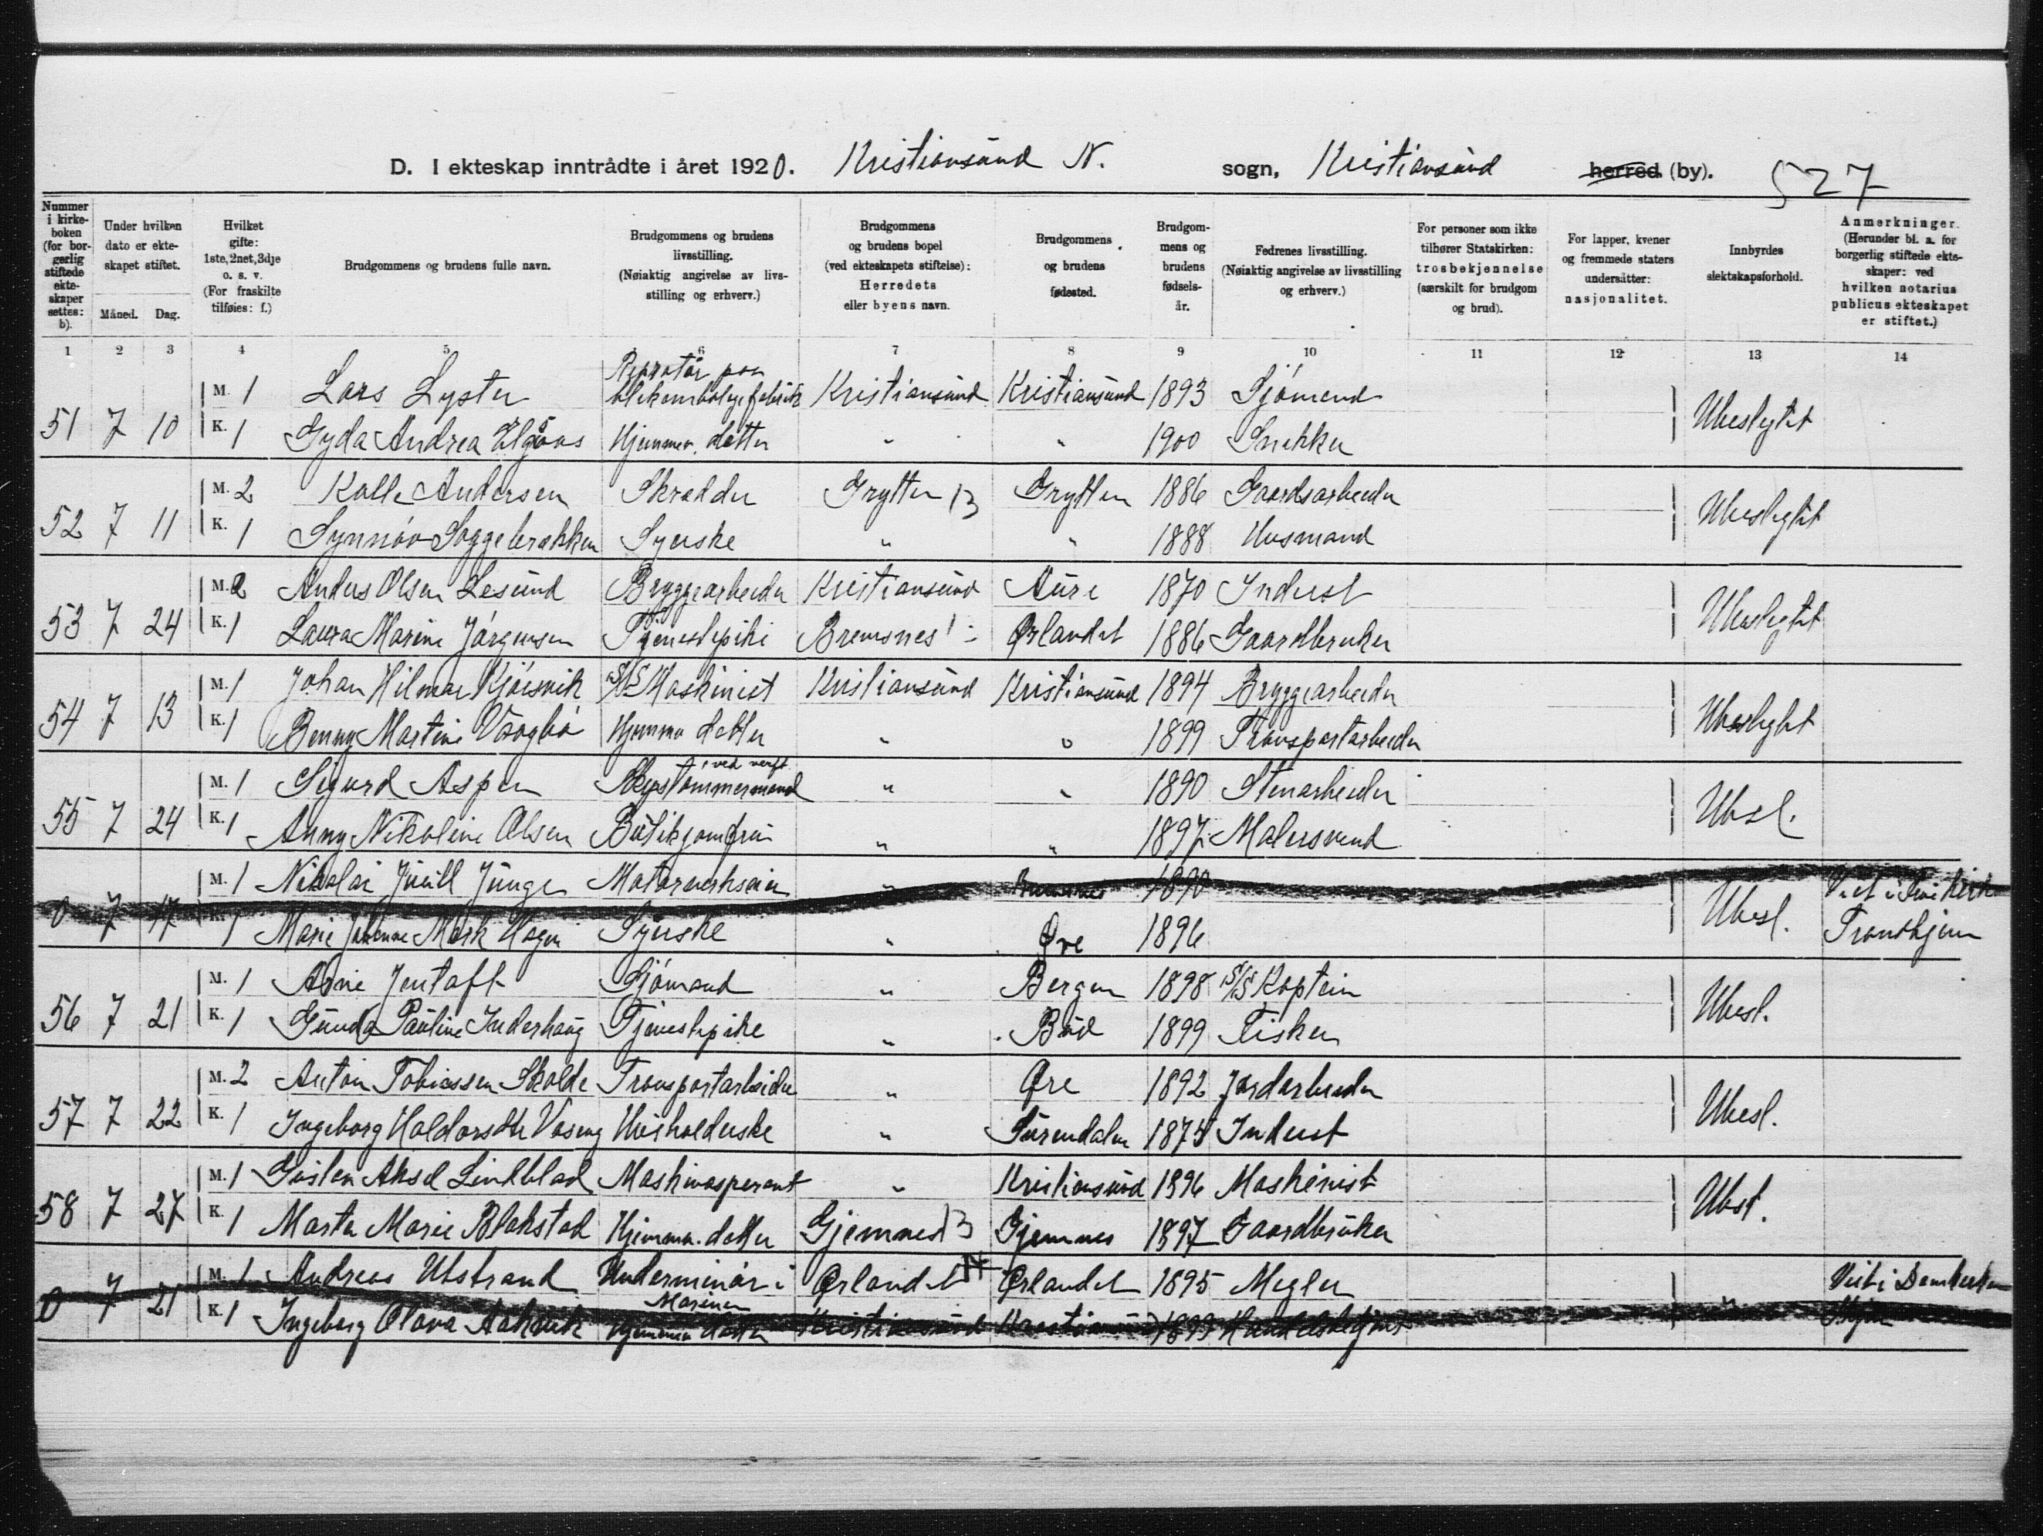 D. I ekteskap inntrådte i året 1920. Kristiansund N. sogn, Kristiansund herred (by). 527
Nummer i kirkeboken (for borgerlig stiftede ekteskaper settes: b).
Under hvilken dato er ekteskapet stiftet. Måned. Dag.
Hvilket gifte: 1ste, 2net, 3dje o. s. v. (For fraskilte tilføies: f.)
Brudgommens og brudens fulle navn.
Brudgommens og brudens livsstilling. (Nøiaktig angivelse av livsstilling og erhverv.)
Brudgommens og brudens bopel (ved ekteskapets stiftelse): Herredets eller byens navn.
Brudgommens og brudens fødested.
Brudgommens og brudens fødselsår.
Fedrenes livsstilling. (Nøiaktig angivelse av livsstilling og erhverv.)
For personer som ikke tilhører Statskirken: trosbekjennelse (særskilt for brudgom og brud).
For lapper, kvener og fremmede staters undersåtter: nasjonalitet.
Innbyrdes slektskapsforhold.
Anmerkninger. (Herunder bl. a. for borgerlig stiftede ekteskaper: ved hvilken notarius publicus ekteskapet er stiftet.)
1 2 3 4 5 6 7 8 9 10 11 12 13 14
M. 1 Lars Lyster Kristiansund Kristiansund 1893 Sjómand
51 7 10 Ubeslegtet
K. 1 Gyda Andrea Hjemmev. datter " " 1900 Snekker
M. 2 Kalle Andersen Skrædder Grytten B Grytten 1886 Gaardsarbeider
52 7 11 Ubeslegtet
K. 1 Synnöv Soggebrekken Syerske " " 1888 Husmand
M. 2 Anders Olsen Lesund Bryggearbeider Kristiansund Aure 1870 Inderst
53 7 24 Ubeslegtet
K. 1 Laura Marine Jörgensen Tjenestepike Bremsnes Ørlandet 1886 Gaardbruker
M. 1 Johan Hilmar Kjörsvik Maskinist Kristiansund Kristiansund 1894 Bryggearbeider
54 7 13 Ubeslegtet
K. 1 Benny Martine Vaagbö Hjemmev datter " " 1899 Transportarbeider
M. 1 Sigurd Aspen Skipstömmermand ved verft " " 1890 Stenarbeider
55 7 24 Ubesl.
K. 1 Anny Nikoline Olsen Butikjomfru " " 1897 Malersvend
M. 1 Nikolai Junge " Bremsnes 1890
0 7 17 Ubesl. Viet i Kirke Trondhjem
K. 1 Marie Johanne Mork Hagen Syerske " Øre 1896
M. 1 Arne Jentoft Sjómand " Bergen 1898 S/S Kaptein
56 7 21 Ubesl.
K. 1 Gunda Pauline Inderhaug Tjenestepike " Bud 1899 Fisker
M. 2 Anton Tobiassen Skalde Transportarbeider " Øre 1892 Jordarbeider
57 7 22 Ubesl.
K. 1 Ingeborg Haldorsdtr Husholderske " Surendalen 1874 Inderst
M. 1 Aksel Lindblad Maskinaspirant " Kristiansund 1896 Maskinist
58 7 27 Ubesl.
K. 1 Marta Marie Blakstad Hjemmev. datter Gjemnes B Gjemnes 1897 Gaardbruker
M. 1 Andreas Utstrand Underminör i Marinen Ørlandet Ørlandet 1895 Megler
0 7 21 " Viet i Domkirken
K. 1 Ingeborg Olava Aakvik Hjemmev datter Kristiansund Kristiansund 1899